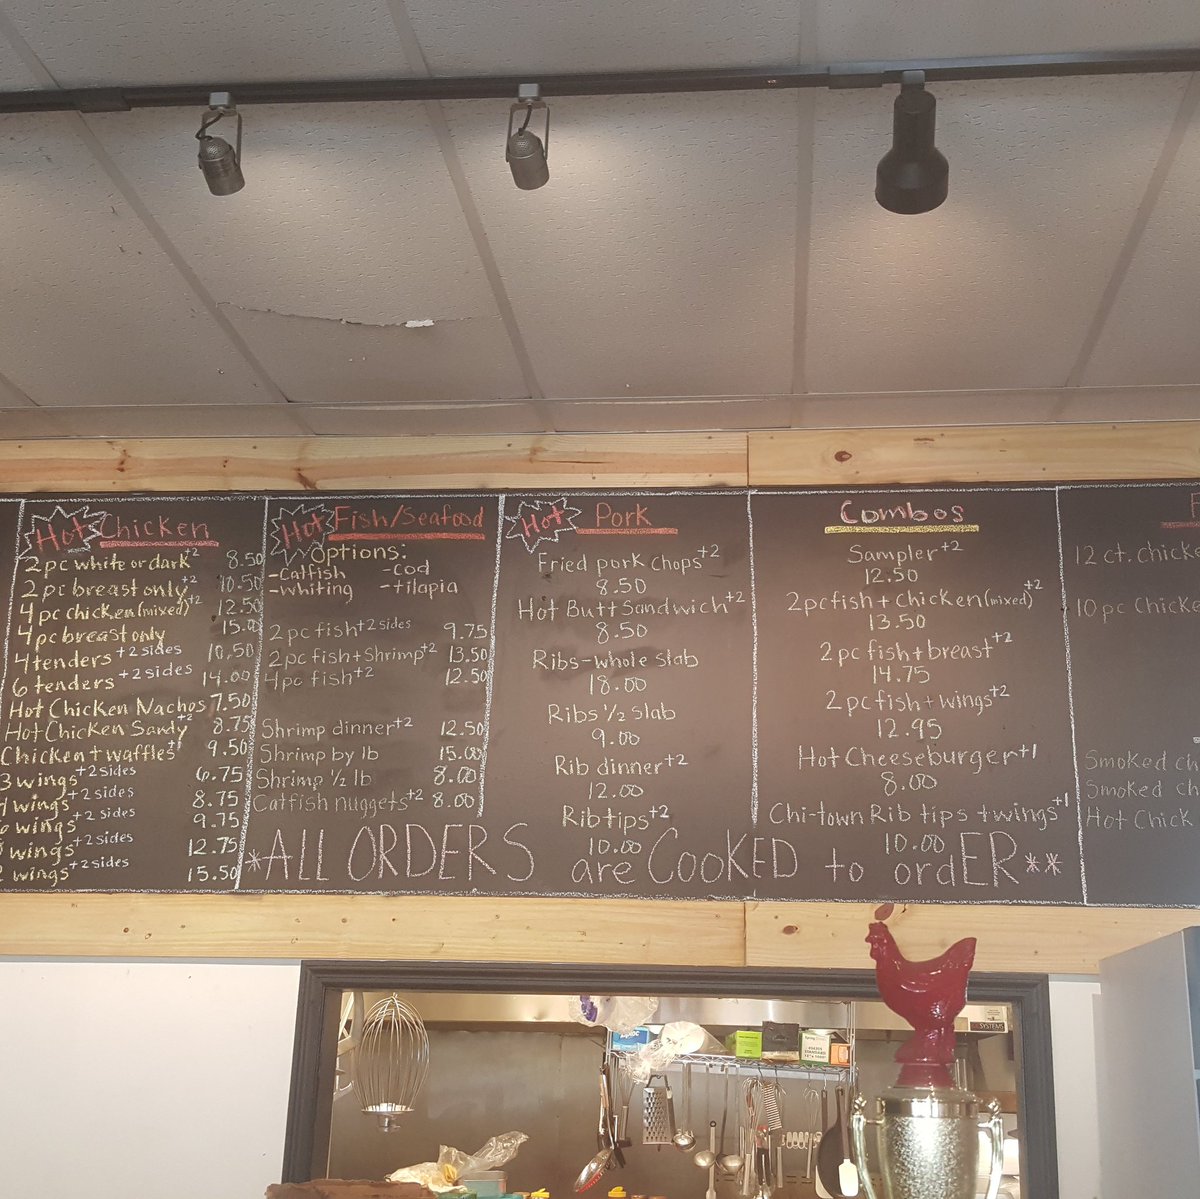 Hot Chicken
2pc white or dark+2 8.50
2pc breast only+2 10.50
4pc chicken(mixed)+2 12.50
4pc breast only 15.00
4 tenders +2 sides 10.50
6 tenders +2 sides 14.00
Hot Chicken Nachos 7.50
Hot Chicken Sandy+2 8.75
Chicken + waffles+1 9.50
3 wings +2 sides 6.75
wings +2 sides 8.75
wings +2 sides 9.75
wings +2 sides 12.75
wings +2 sides 15.50
Hot Fish/Seafood
Options:
-Catfish -Cod
-whiting -tilapia
2pc fish +2 sides 9.75
2pc fish + Shrimp+2 13.50
4pc fish+2 12.50
Shrimp dinner+2 12.50
Shrimp by lb 15.00
Shrimp 1/2 lb 8.00
Catfish nuggets+2 8.00
Hot Pork
Fried pork chops+2
8.50
Hot Butt Sandwich+2
8.50
Ribs-whole slab
18.00
Ribs 1/2 slab
9.00
Rib dinner+2
12.00
Rib tips+2
10.00
Combos
Sampler+2
12.50
2pc fish + Chicken(mixed)+2
13.50
2pc fish + breast+2
14.75
2pc fish + wings+2
12.95
Hot Cheeseburger+1
8.00
Chi-town Rib tips + wings+1
10.00
12 ct.
10 pc
Smoked
Smoked
Hot Chick
*ALL ORDERS are CooKED to ordER**
SYSTEMS